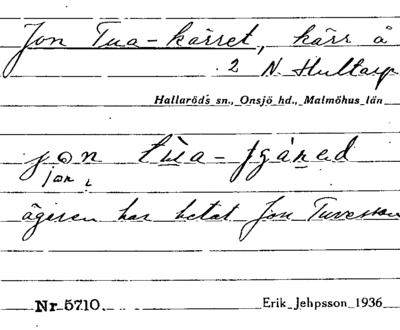 Jon Tua-kärret, kärr å
2 N. Hultarp
Hallaröds sn., Onsjö hd., Malmöhus län
jon
jon
ägaren har hetat Jon Tuvesson
Nr 5710. Erik Jehpsson 1936